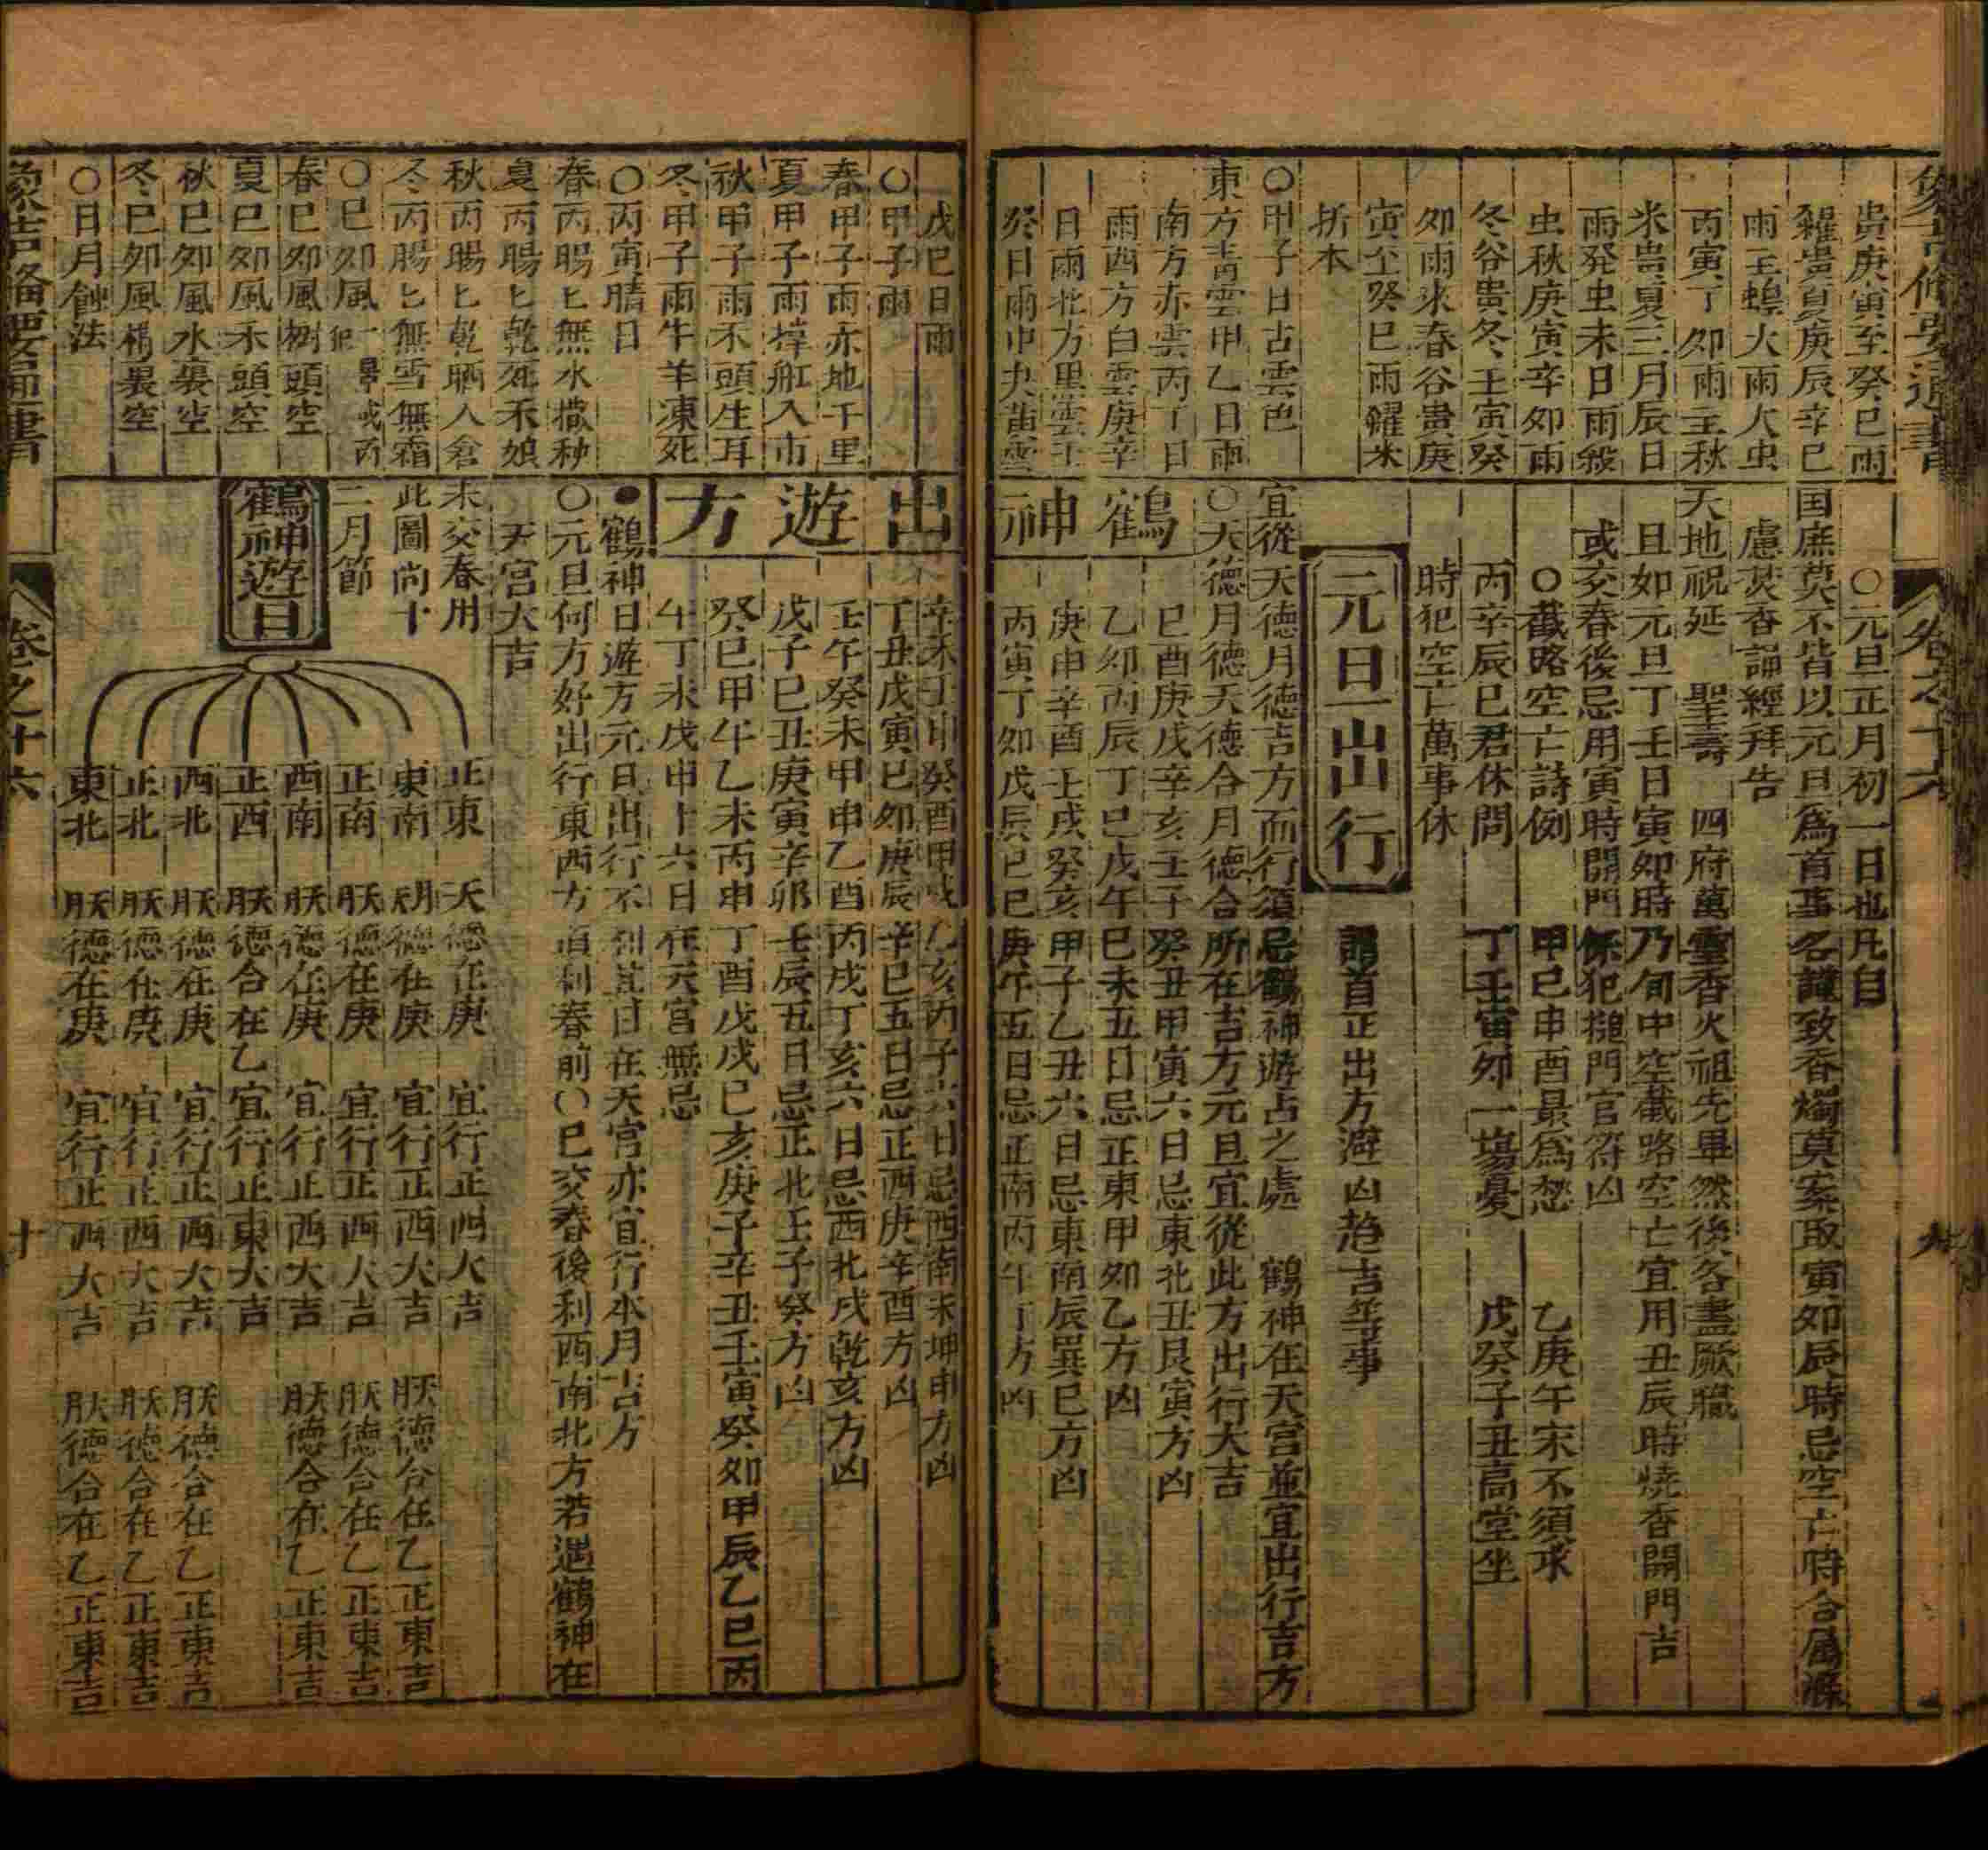 象吉備要通書
卷之十六
貴庚寅至癸巳雨
糴貴夏庚辰辛巳
雨主蝗大雨大虫
丙寅丁卯雨主秋
米貴夏三月辰日
雨発虫未日雨殺
虫秋庚寅辛卯雨
冬谷貴冬壬寅癸
卯雨來春谷貴庚
寅至癸巳雨糴米
折本
〇甲子日占雲色
東方青雲甲乙日雨
南方赤雲丙丁日
雨西方白雲庚辛
日雨北方黒雲壬
癸日雨中央黃雲
〇元旦正月初一日也凡自
国庶莫不皆以元旦爲首事名謹致香燭奠案取寅卯辰時忌空亡時合属滌
慮焚香誦經拜告
天地祝延 聖壽 四府萬靈香火祖先畢然後各盡厥職
且如元旦丁壬日寅卯時乃旬中空截路空亡宜用丑辰時燒香開門吉
或交春後忌用寅時開門係犯搥門官符凶
〇截路空亡詩例 甲己申酉最爲愁 乙庚午未不須求
丙辛辰巳君休問 丁壬寅卯一塲憂 戊癸子丑高堂坐
時犯空亡萬事休
元旦出行
謂首正出方避凶趋吉等事
宜從天德月德吉方而行須忌鶴神遊占之處 鶴神在天宮並宜出行吉方
〇天德月德天德合月德合所在吉方元旦宜從此方出行大吉
鶴神
巳酉庚戌辛亥壬子癸丑甲寅六日忌東北丑艮寅方凶
乙卯丙辰丁巳戊午巳未五日忌正東甲卯乙方凶
庚申辛酉壬戌癸亥甲子乙丑六日忌東南辰巽巳方凶
丙寅丁卯戊辰巳巳庚午五日忌正南丙午丁方凶
戊巳日雨
〇甲子雨
春甲子雨赤地千里
夏甲子雨撑舡入市
秋甲子雨禾頭生耳
冬甲子雨牛羊凍死
〇丙寅晴日
春丙暘匕無水撒种
夏丙暘匕乾死禾娘
秋丙暘匕乾晒人倉
冬丙暘匕無雪無霜
〇巳卯風
春巳卯風樹頭空
夏巳卯風禾頭空
秋巳卯風水裏空
冬巳卯風欄裏空
〇日月蝕法
出遊方
辛未壬申癸酉甲戌乙亥丙子六日忌西南未坤申方凶
丁丑戊寅巳卯庚辰辛巳五日忌正西庚辛酉方凶
壬午癸未甲申乙酉丙戌丁亥六日忌西北戌乾亥方凶
戊子巳丑庚寅辛卯壬辰五日忌正北壬子癸方凶
癸巳甲午乙未丙申丁酉戊戌巳亥庚子辛丑壬寅癸卯甲辰乙巳丙
午丁未戊申十六日在天宮無忌
●鶴神日遊方元日出行不利其日在天宮亦宜行本月吉方
〇元旦何方好出行東西方有利春前〇巳交春後利西南北方若遇鶴神在
天宮大吉
未交春用
此圖尚十
二月節
鶴神遊日
正東 天德在庚 宜行正西大吉
東南 天月德在庚 宜行正西大吉 天月德合在乙正東吉
正南 天月德在庚 宜行正西大吉 天月德合在乙正東吉
西南 天月德在庚 宜行正西大吉 天月德合在乙正東吉
正西 天月德合在乙宜行正東大吉
西北 天月德在庚 宜行正西大吉 天月德合在乙正東吉
正北 天月德在庚 宜行正西大吉 天月德合在乙正東吉
東北 天月德在庚 宜行正西大吉 天月德合在乙正東吉
象吉備要通書
卷之十六
十